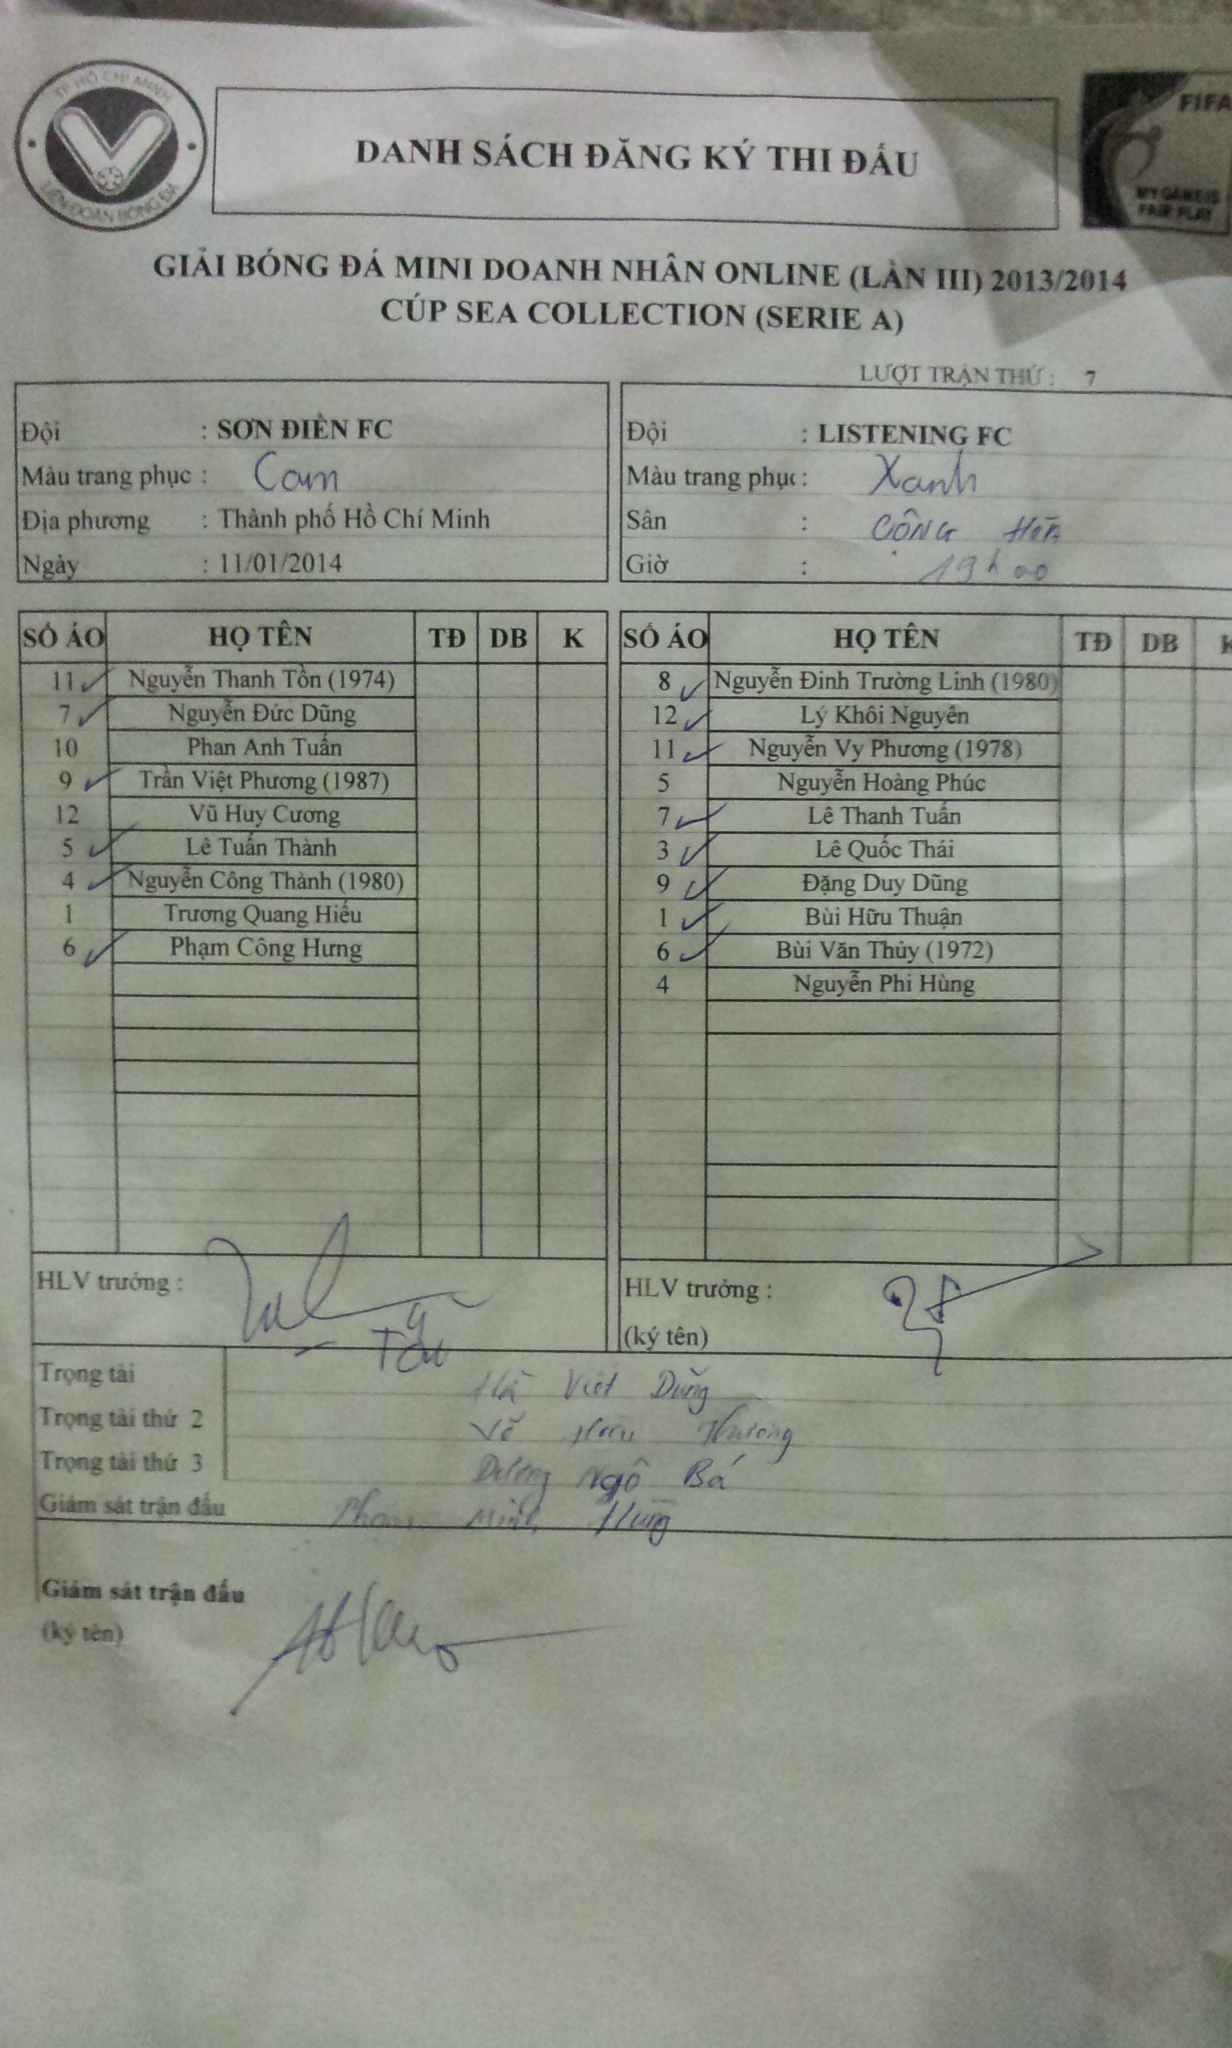 TP HỒ CHÍ MINH
LIÊN ĐOÀN BÓNG ĐÁ
DANH SÁCH ĐĂNG KÝ THI ĐẤU
FIFA
MY GAME IS
FAIR PLAY
GIẢI BÓNG ĐÁ MINI DOANH NHÂN ONLINE (LẦN III) 2013/2014
CÚP SEA COLLECTION (SERIE A)
LƯỢT TRẬN THỨ : 7
Đội : SƠN ĐIỀN FC
Màu trang phục : Cam
Địa phương : Thành phố Hồ Chí Minh
Ngày : 11/01/2014
Đội : LISTENING FC
Màu trang phục : Xanh
Sân : CỘNG HÒA
Giờ : 19h00
SỐ ÁO HỌ TÊN TĐ DB K
11 Nguyễn Thanh Tồn (1974)
7 Nguyễn Đức Dũng
10 Phan Anh Tuấn
9 Trần Việt Phương (1987)
12 Vũ Huy Cương
5 Lê Tuấn Thành
4 Nguyễn Công Thành (1980)
1 Trương Quang Hiếu
6 Phạm Công Hưng
HLV trưởng :
SỐ ÁO HỌ TÊN TĐ DB K
8 Nguyễn Đình Trường Linh (1980)
12 Lý Khôi Nguyên
11 Nguyễn Vy Phương (1978)
5 Nguyễn Hoàng Phúc
7 Lê Thanh Tuấn
3 Lê Quốc Thái
9 Đặng Duy Dũng
1 Bùi Hữu Thuận
6 Bùi Văn Thủy (1972)
4 Nguyễn Phi Hùng
HLV trưởng :
(ký tên)
Trọng tài Hà Việt Dũng
Trọng tài thứ 2 Võ Thương
Trọng tài thứ 3 Dương Ngô Bá
Giám sát trận đấu Phạm Minh Hùng
Giám sát trận đấu
(ký tên)